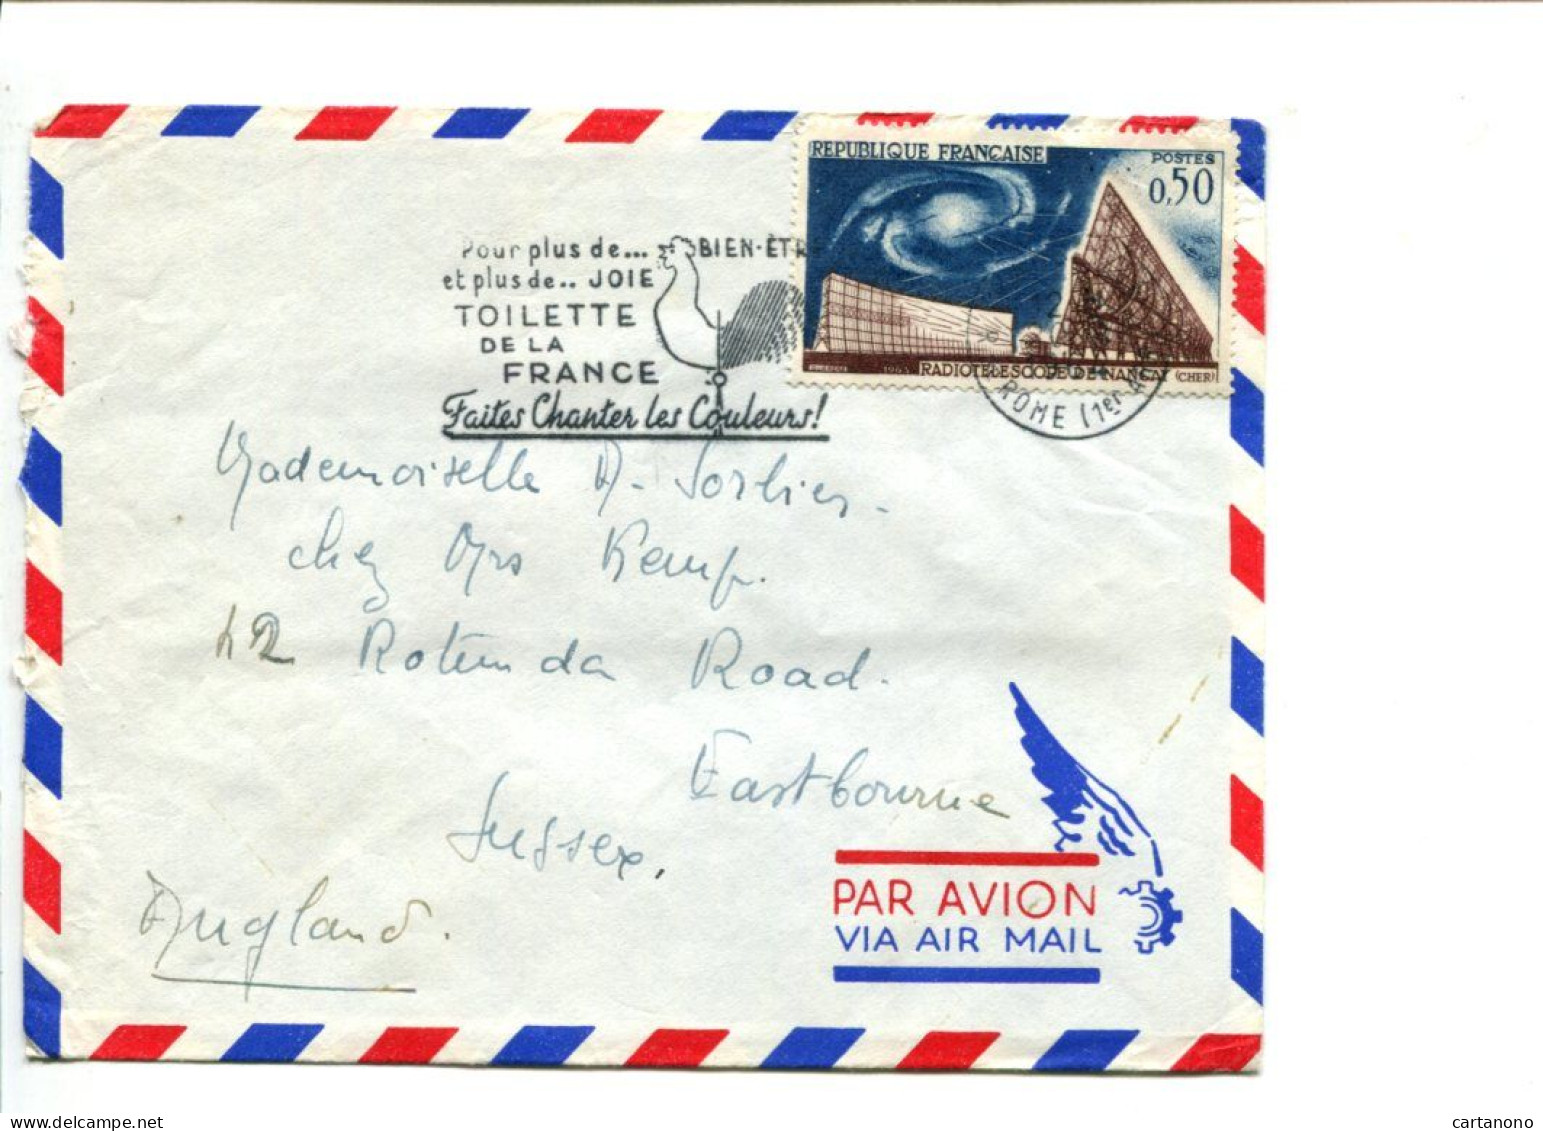 REPUBLIQUE FRANÇAISE
POSTES
0,50
RADIOTELESCOPE DE NANÇAY (CHER)
1963
Pour plus de... BIEN-ÊTRE
et plus de.. JOIE
TOILETTE
DE LA
FRANCE
Faites Chanter les Couleurs!
ROME (1er
Mademoiselle A. Sorbier
chez Mrs Kemp.
42 Rotunda Road.
Eastbourne
Sussex,
England.
PAR AVION
VIA AIR MAIL
cartanono